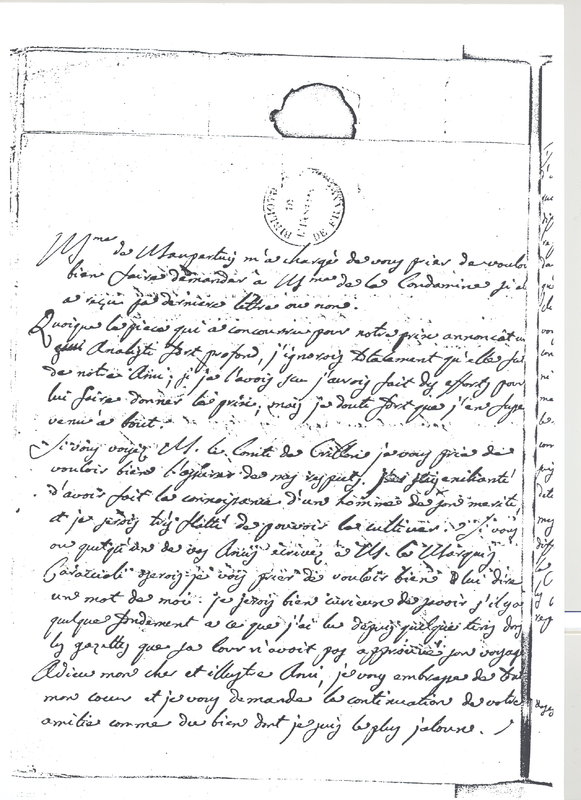 BIBLIOTHEQUE DE L'INSTITUT DE FRANCE
Mme de Maupertuis m'a chargé de vous prier de vouloir
bien faire demander à Mme de la Condamine si elle
a reçu sa derniere lettre ou non.
Quoique la piece qui a concouru pour notre prix annonçat un
Analyste fort profond, j'ignorois totalement qu'elle fut
de notre Ami; si je l'avois su j'aurois fait des efforts pour
lui faire donner le prix; mais je doute fort que j'en fusse
venu à bout.
Si vous voyez M. le Comte de Crillon je vous prie de
vouloir bien l'assurer de mes respects. enchanté
d'avoir fait la connoissance d'un homme de son merite,
et je serois très flatté de pouvoir la cultiver. Si vous
ou quelqu'un de vos Amis ecrivez à M. le Marquis
Caraccioli oserois-je vous prier de vouloir bien lui dire
un mot de moi. je serois bien curieux de savoir s'il y a
quelque fondement a ce que j'ai lu depuis quelque tems dans
les gazettes que sa Cour n'avoit pas approuvé son voyage
Adieu mon cher et illustre Ami, je vous embrasse de tout
mon coeur et je vous demande la continuation de votre
amitié comme du bien dont je suis le plus jaloux.